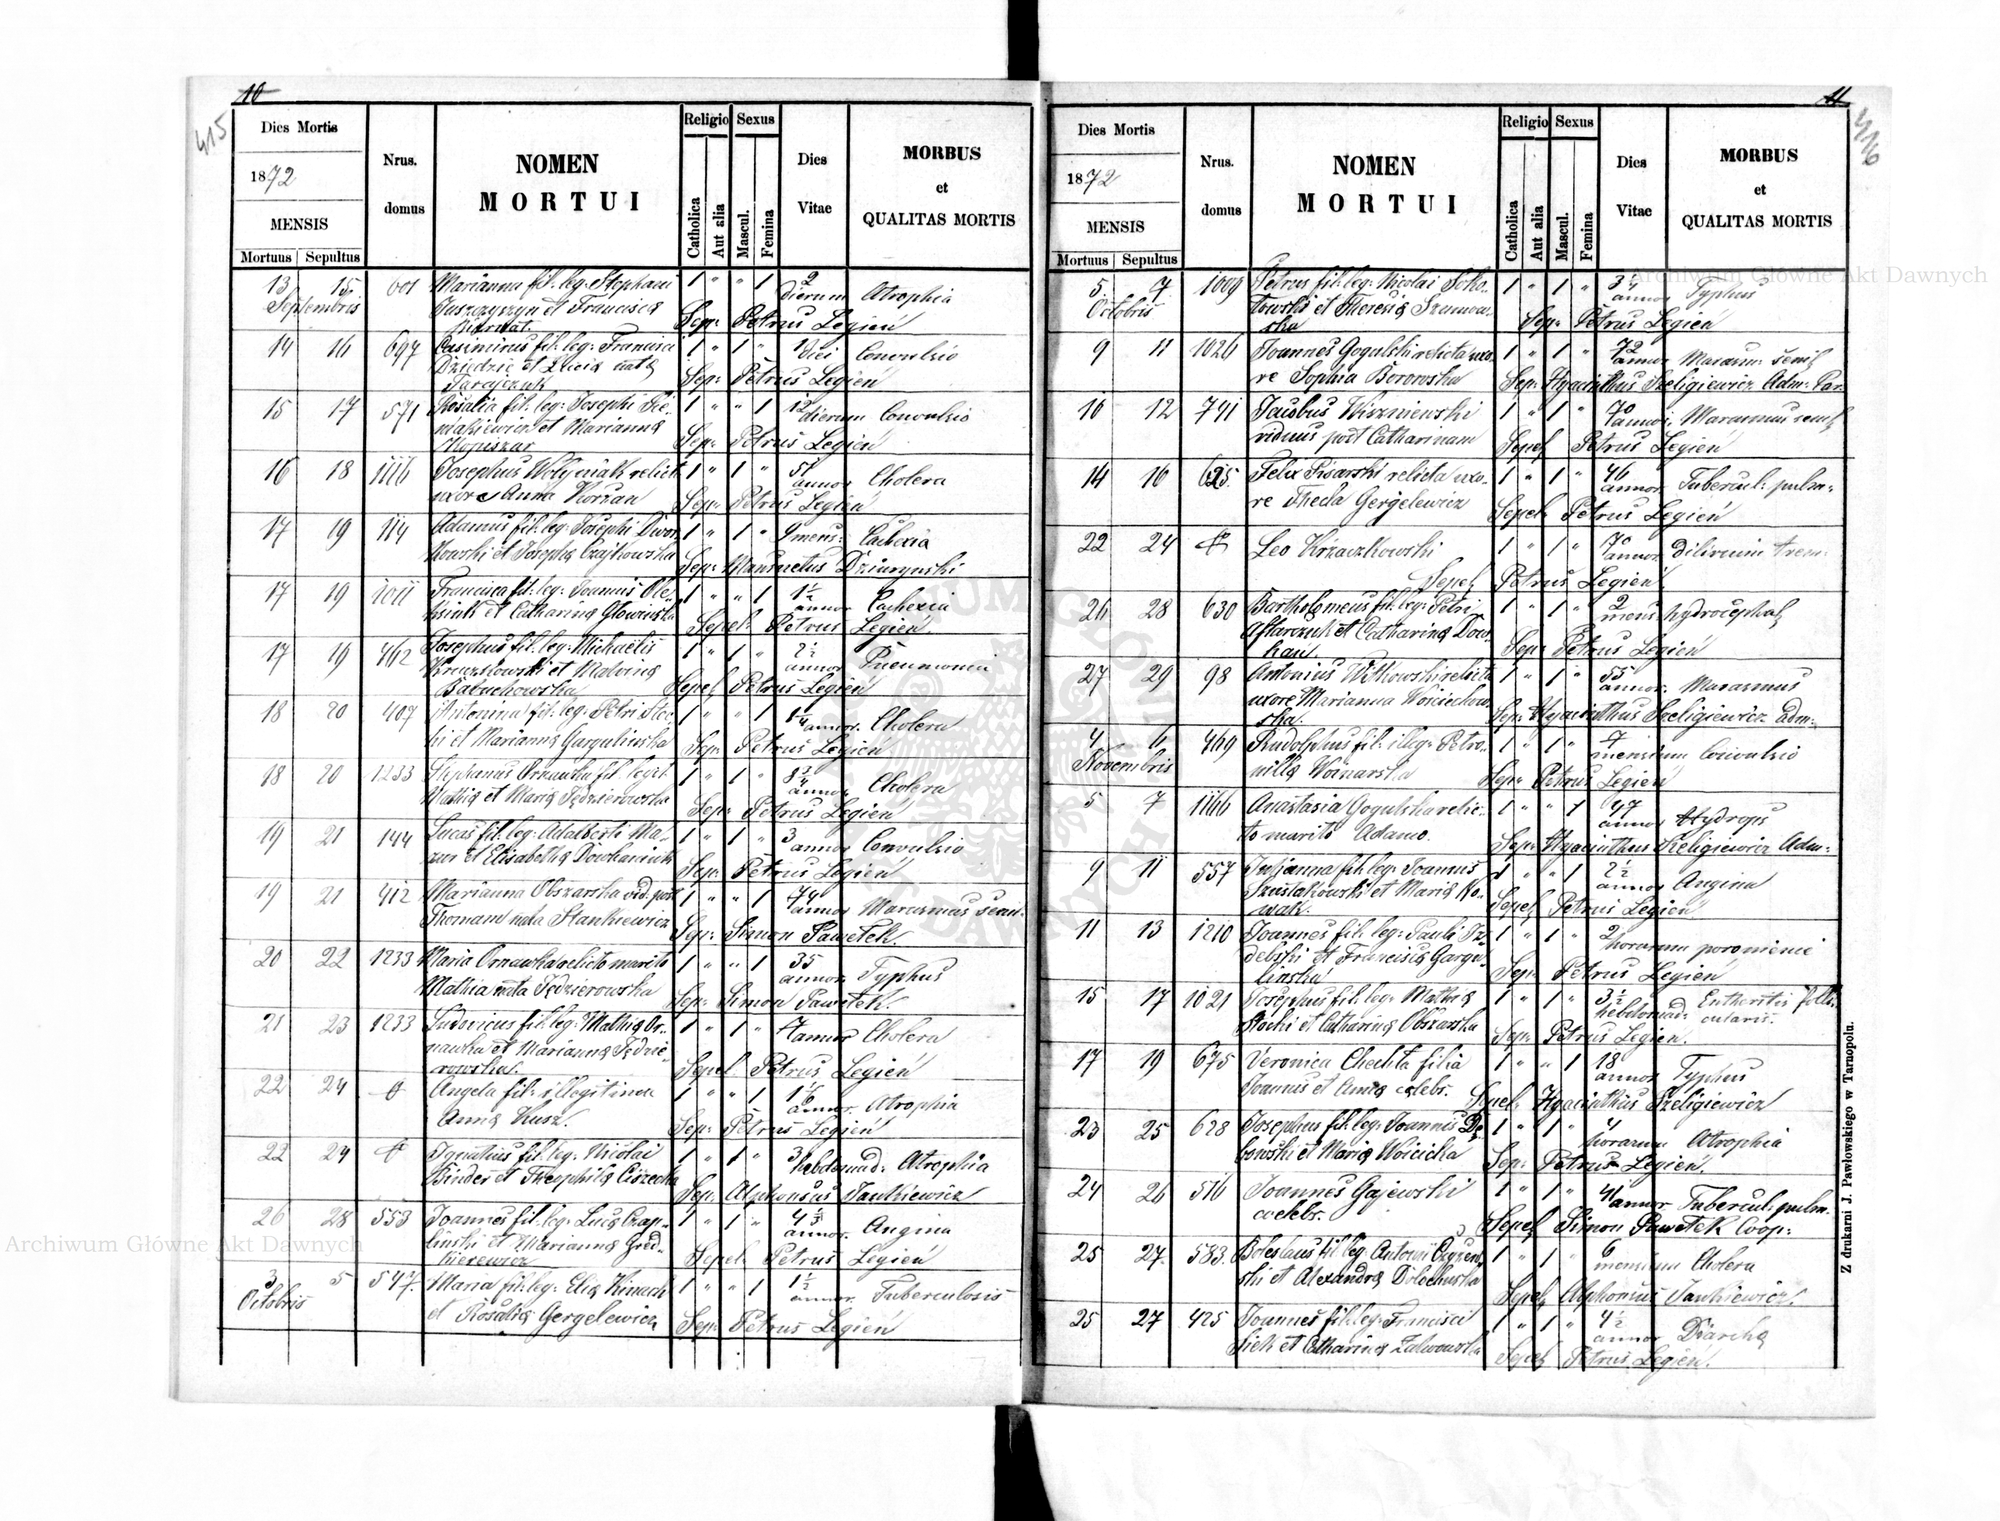 10
415
Dies Mortis
1872
MENSIS
Mortuus Sepultus
Nrus. domus
NOMEN
MORTUI
Religio
Catholica
Aut alia
Sexus
Mascul.
Femina
Dies Vitae
MORBUS
et
QUALITAS MORTIS
13 15 601 Marianna fil: leg: Stephani 1 " " 1 2
Septembris et Francisca dierum Atrophia
Sep: Petrus Legień
14 16 697 Casimirus fil: leg: Francisci 1 " 1 "
Dziedzic et Lucia nata diei Convulsio
Sep: Petrus Legień
15 17 571 Rosalia fil: leg: Josephi 1 " " 1 12
et Marianna dierum Convulsio
Sep: Petrus Legień
16 18 1116 Josephus Wołyniak relicta 1 " 1 " 51
uxore Anna Korzan annor Cholera
Sep: Petrus Legień
17 19 114 Adamus fil: leg: Josephi Dwor 1 " 1 " 9 mens: Cachexia
kowski et Josepha Czajkowska
Sep: Mansuetus Dziurzyński
17 19 1011 Francisca fil: leg: Joannis Ole 1 " " 1 1 1/2
ksiuk et Catharina Głowińska annor Cachexia
Sepel: Petrus Legień
17 19 462 Josephus fil: leg: Michaelis 1 " 1 " 2 1/2
et Malvina annor Pneumonia
Babuchowska Sepel Petrus Legień
18 20 407 Antonina fil: leg: Petri 1 " " 1 1 1/4
et Marianna Gargulińska annor. Cholera
Sep: Petrus Legień
18 20 1233 Stephanus Ornawka fil. legit. 1 " 1 "
Mathia et Maria Jędzierowska annor Cholera
Sep: Petrus Legień
19 21 144 Lucas fil: leg: Adalberti Ma- 1 " 1 " 3
zur et Elisabetha Dowhaniuk annor Convulsio
Sep: Petrus Legień
19 21 412 Marianna Obszarska vid: post 1 " " 1 74
Thomam nata Stankiewicz annor Marasmus senil:
Sep: Simon Pawełek.
20 22 1233 Maria Ornawka relicto marito 1 " " 1 35
Mathia nata Jędzierowska annor. Typhus
Sep: Simon Pawełek.
21 23 1233 Ludovicus fil: leg: Mathia Or- 1 " 1 " 7
nawka et Marianna Jędzie- annor Cholera
rowska. Sepel Petrus Legień
22 24 Angela fil: illegitima 1 " " 1
Anna Kusz. annor. Atrophia
Sep: Petrus Legień
22 24 Ignatius fil: leg: Nicolai 1 " 1 " 3
Binder et Theophila Ciszecka hebdomad: Atrophia
Sep: Alphonsus Jankiewicz
26 28 553 Joannes fil: leg: Luca Czap- 1 " 1 "
liński et Marianna Gred- annor. Angina
kierewicz Sepel: Petrus Legień
3 5 547. Maria fil: leg: Elia Kinach 1 " " 1 1 1/2
Octobris et Rosalia Gergelewicz annor. Tuberculosis
Sep: Petrus Legień
11
416
Dies Mortis
1872
MENSIS
Mortuus Sepultus
Nrus. domus
NOMEN
MORTUI
Religio
Catholica
Aut alia
Sexus
Mascul.
Femina
Dies Vitae
MORBUS
et
QUALITAS MORTIS
5 7 1009 Petrus fil: leg: Nicolai Soko- 1 " 1 "
Octobris łowski et Theresia annor Typhus
Sep: Petrus Legień
9 11 1026 Joannes Gogulski relicta uxo- 1 " 1 " 72
re Sophia Borowska annor Marasm: senil
Sep: Hyacinthus Szeligiewicz Adm: Par.
10 12 741 Jacobus Wiszniewski 1 " 1 " 70
viduus post Catharinam annor; Marasmus senil
Sepel Petrus Legień
14 16 625. Felix Pisarski relicta uxo- 1 " 1 " 46
re Thecla Gergelewicz annor Tubercul: pulm:
Sepel Petrus Legień
22 24 Leo Krzaczkowski 1 " 1 " 70
annor. dilirium trem:
Sepel Petrus Legień
26 28 630 Bartholomeus fil: leg: Petri 1 " 1 " 2
et Catharina Dow- mens: hydrocephal
han. Sep: Petrus Legień
27 29 98 Antonius Witkowski relicta 1 " 1 " 55
uxore Marianna Wojciechow- annor. Marasmus
ska. Sep: Hyacinthus Szeligiewicz adm:
4 6 469 Rudolphus fil: illeg: Petro- 1 " 1 " 7
Novembris nilla Woinarska mensium Convulsio
Sep: Petrus Legień
5 7 1166 Anastasia Gogulska relic- 1 " " 1 47
to marito Adamo. annor Hydrops
Sep: Hyacinthus Szeligiewicz Adm:
9 11 557 Julianna fil: leg: Joannis 1 " " 1 2 1/2
Szustakowski et Maria No- annor Angina
wak. Sepel Petrus Legień
11 13 1210 Joannes fil: leg: Pauli 1 " 1 " 2
et Francisca Gargu- horarum poronienie
lińska Sep: Petrus Legień
15 17 1021 Josephus fil: leg: Mathia 1 " 1 " 3 1/2 Entheritis folli-
Stocki et Catharina Obszarska hebdomad: cularis.
Sep: Petrus Legień.
17 19 675 Veronica Chechła filia 1 " " 1 18
Joannis et Anna celebs. annor Typhus
Sepel: Hyacinthus Szeligiewicz
23 25 628 Josephus fil: leg: Joannis Dę 1 " 1 " 4
bowski et Maria Woicicka horarum Atrophia
Sep: Petrus Legień.
24 26 516 Joannes Gajewski 1 " 1 " 41
celebs. annor Tubercul: pulm.
Sepel Simon Pawełek Coop:
25 27. 583. Boleslaus fil: leg: Antonii 1 " 1 " 6
ski et Alexandra mensium Cholera
Sepel Alphonsus Jankiewicz.
25 27 425 Joannes fil: leg: Francisci 1 " 1 " 4 1/2
et Catharina Zalwowska annor Diarrha
Sepel Petrus Legień.
Z drukarni J. Pawłowskiego w Tarnopolu.
Archiwum Główne Akt Dawnych
Archiwum Główne Akt Dawnych
ARCHIWUM GŁÓWNE AKT DAWNYCH